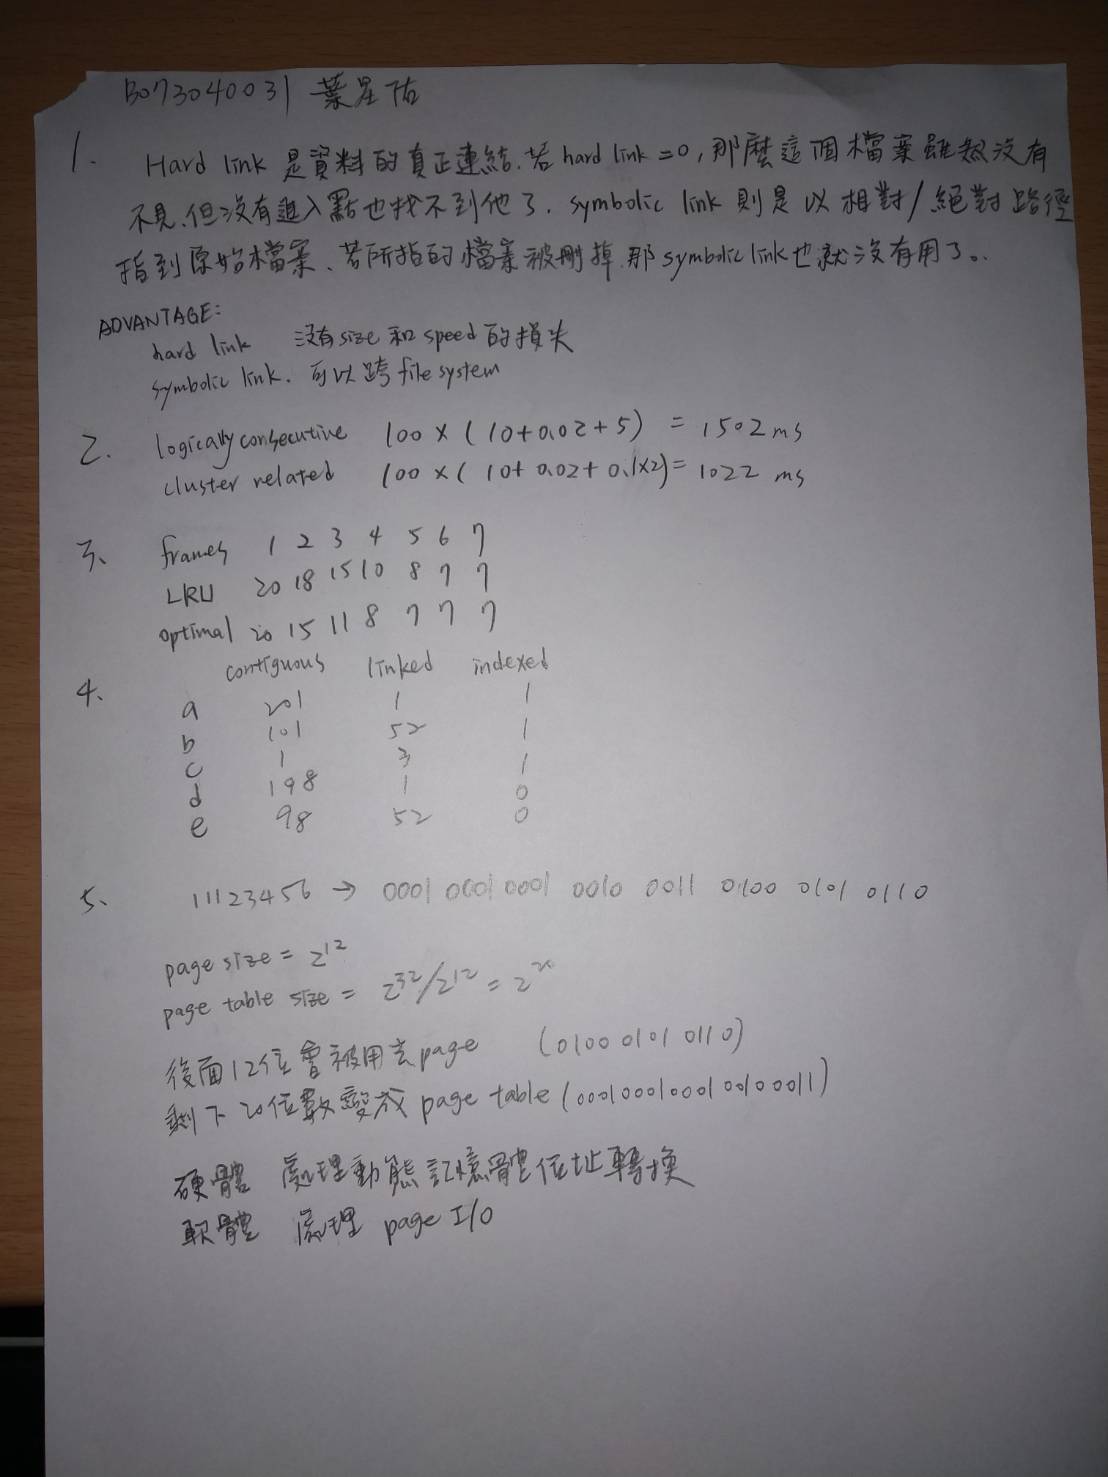 B073040031 葉星佑
1. Hard link 是資料的真正連結.若 hard link =0,那麼這個檔案雖然沒有
不見.但沒有進入點也找不到他了. symbolic link 則是以相對/絕對路徑
指到原始檔案、若所指的檔案被刪掉.那symbolic link也就沒有用了。
ADVANTAGE:
hard link 沒有size和speed的損失
symbolic link. 可以跨 file system
2. logically consecutive 100 × ( 10+0.02+5) = 1502 ms
cluster related 100 × ( 10+0.02+0.1×2)= 1022 ms
3、 frames 1 2 3 4 5 6 7
LRU 20 18 15 10 8 7 7
optimal 20 15 11 8 7 7 7
contiguous linked indexed
4. a 201 1 1
b 101 52 1
c 1 3 1
d 198 1 0
e 98 52 0
5. 11123456 → 0001 0001 0001 0010 0011 0100 0101 0110
page size = 2¹²
page table size = 2³²/2¹² = 2²⁰
後面12位會被用去page (0100 0101 0110)
剩下20位數變成 page table (00010001000100100011)
硬體 處理動態記憶體位址轉換
軟體 處理 page I/O